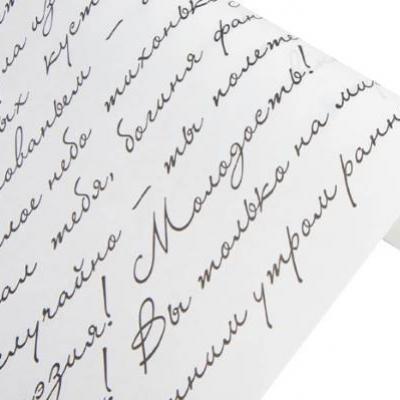 ла из
ых куст
ованьем – тихонько
лое небо богиня фан
ал тебя, ты полете
случайно – Молодость!
езия! Вы только на ми
! ним утром ранн